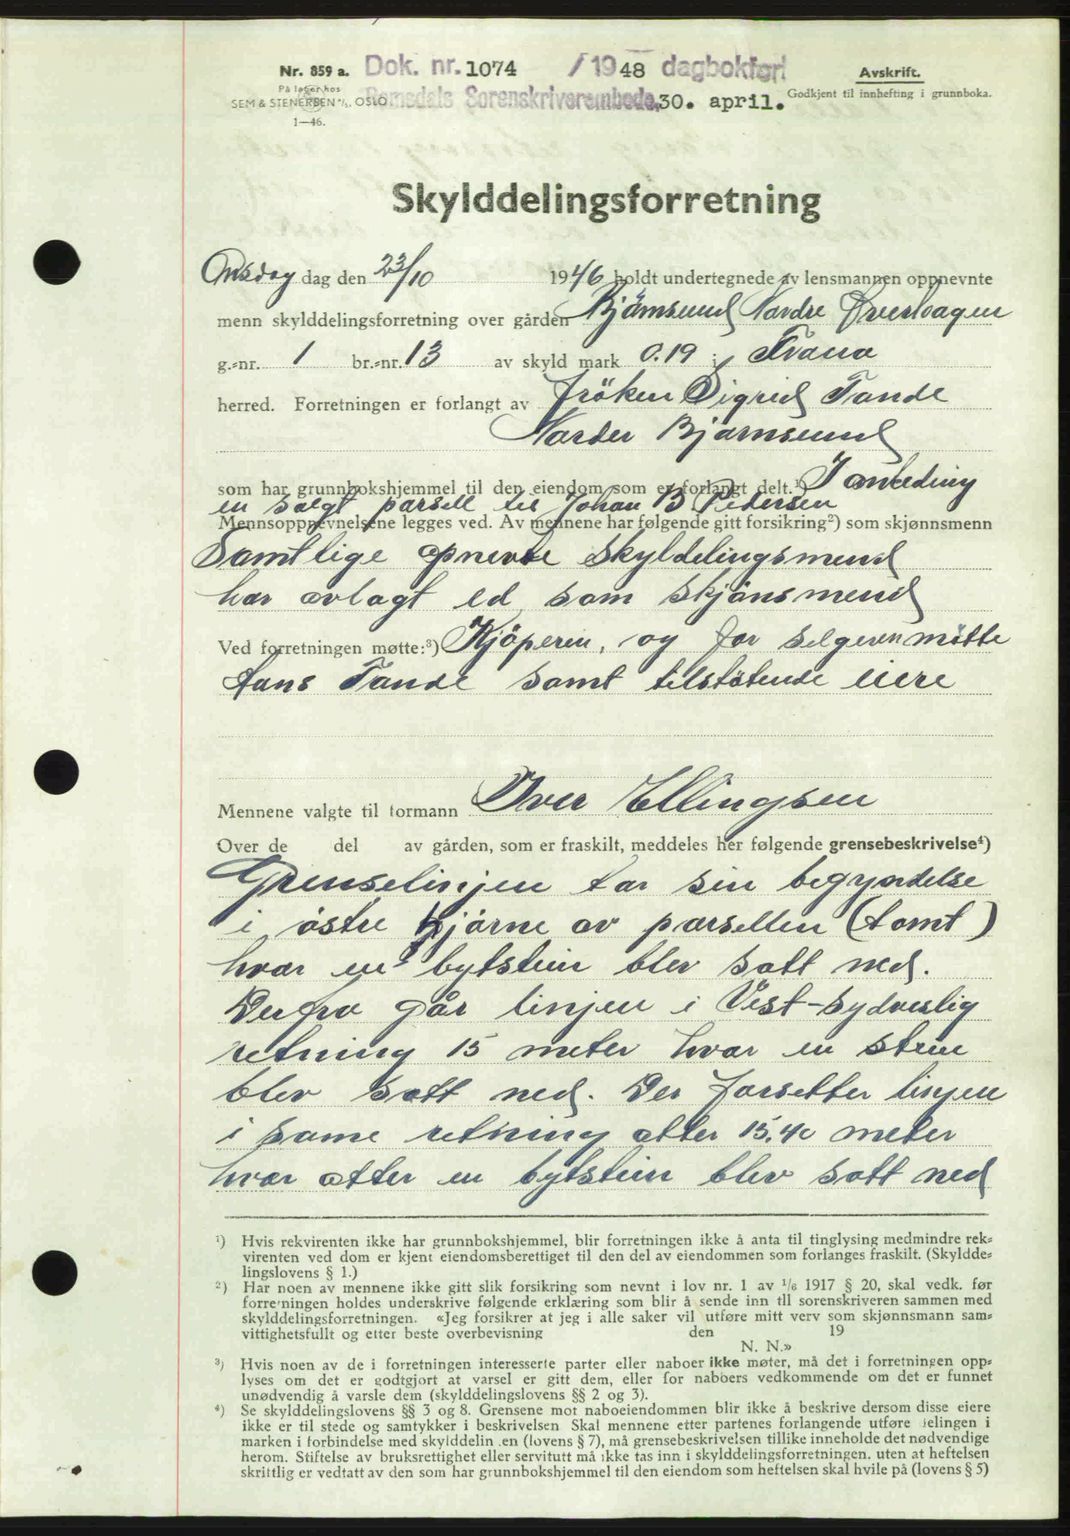 Nr. 859 a. Dok. nr. 1074 /1948 dagbokført Avskrift.
På lager hos Godkjent til innhefting i grunnboka.
SEM & STENERSEN A/S, OSLO. Romsdals Sorenskriverembede, 30. april.
1—46.
Skylddelingsforretning
Onsdag dag den 23/10 1946 holdt undertegnede av lensmannen oppnevnte
menn skylddelingsforretning over gården Bjørnsund Nordre Øverhagen
g.-nr. 1 br.-nr. 13 av skyld mark 0.19 i Fræna
herred. Forretningen er forlangt av Frøken Sigrid Tande
Nordre Bjørnsund
som har grunnbokshjemmel til den eiendom som er forlangt delt.¹) I anleding
en solgt parsell til Johan B Pedersen
Mennsoppnevnelsene legges ved. Av mennene har følgende gitt forsikring²) som skjønnsmenn
Samtlige opnevte skyldelingsmend
har avlagt ed som skjønsmend
Ved forretningen møtte:³) Kjøperen, og for selgeren møtte
Hans Tande samt tilstøtende eiere
Mennene valgte til formann Iver Ellingsen
Over de del av gården, som er fraskilt, meddeles her følgende grensebeskrivelse⁴)
Grenselinjen tar sin begyndelse
i østre hjørne av parsellen (tomt)
hvor en bytstein blev satt ned.
Derfra går linjen i Vest-sydveslig
retning 15 meter hvor en stein
blev satt ned. Der forsetter linjen
i same retning atter 15.40 meter
hvor atter en bytstein blev satt ned
¹) Hvis rekvirenten ikke har grunnbokshjemmel, blir forretningen ikke å anta til tinglysing medmindre rek-
virenten ved dom er kjent eiendomsberettiget til den del av eiendommen som forlanges fraskilt. (Skyldde-
lingslovens § 1.)
²) Har noen av mennene ikke gitt slik forsikring som nevnt i lov nr. 1 av 1/6 1917 § 20, skal vedk. før
forretningen holdes underskrive følgende erklæring som blir å sende inn til sorenskriveren sammen med
skylddelingsforretningen. «Jeg forsikrer at jeg i alle saker vil utføre mitt verv som skjønnsmann sam-
vittighetsfullt og etter beste overbevisning den 19
N. N.»
³) Hvis noen av de i forretningen interesserte parter eller naboer ikke møter, må det i forretningen opp-
lyses om det er godtgjort at varsel er gitt dem, eller for naboers vedkommende om det er funnet
unødvendig å varsle dem (skylddelingslovens §§ 2 og 3).
⁴) Se skylddelingslovens §§ 3 og 8. Grensene mot naboeiendommen blir ikke å beskrive dersom disse eiere
ikke er til stede og samtykker i beskrivelsen Skal mennene etter partenes forlangende utføre delingen i
marken i forbindelse med skylddelingen (lovens § 7), må grensebeskrivelsen tillike inneholde det nødvendige
herom. Stiftelse av bruksrettighet eller servitutt må ikke tas inn i skylddelingsforretningen, uten at heftelsen
skriftlig er vedtatt av den som har grunnbokshjemmel til den eiendom som heftelsen skal hvile på (lovens § 5)